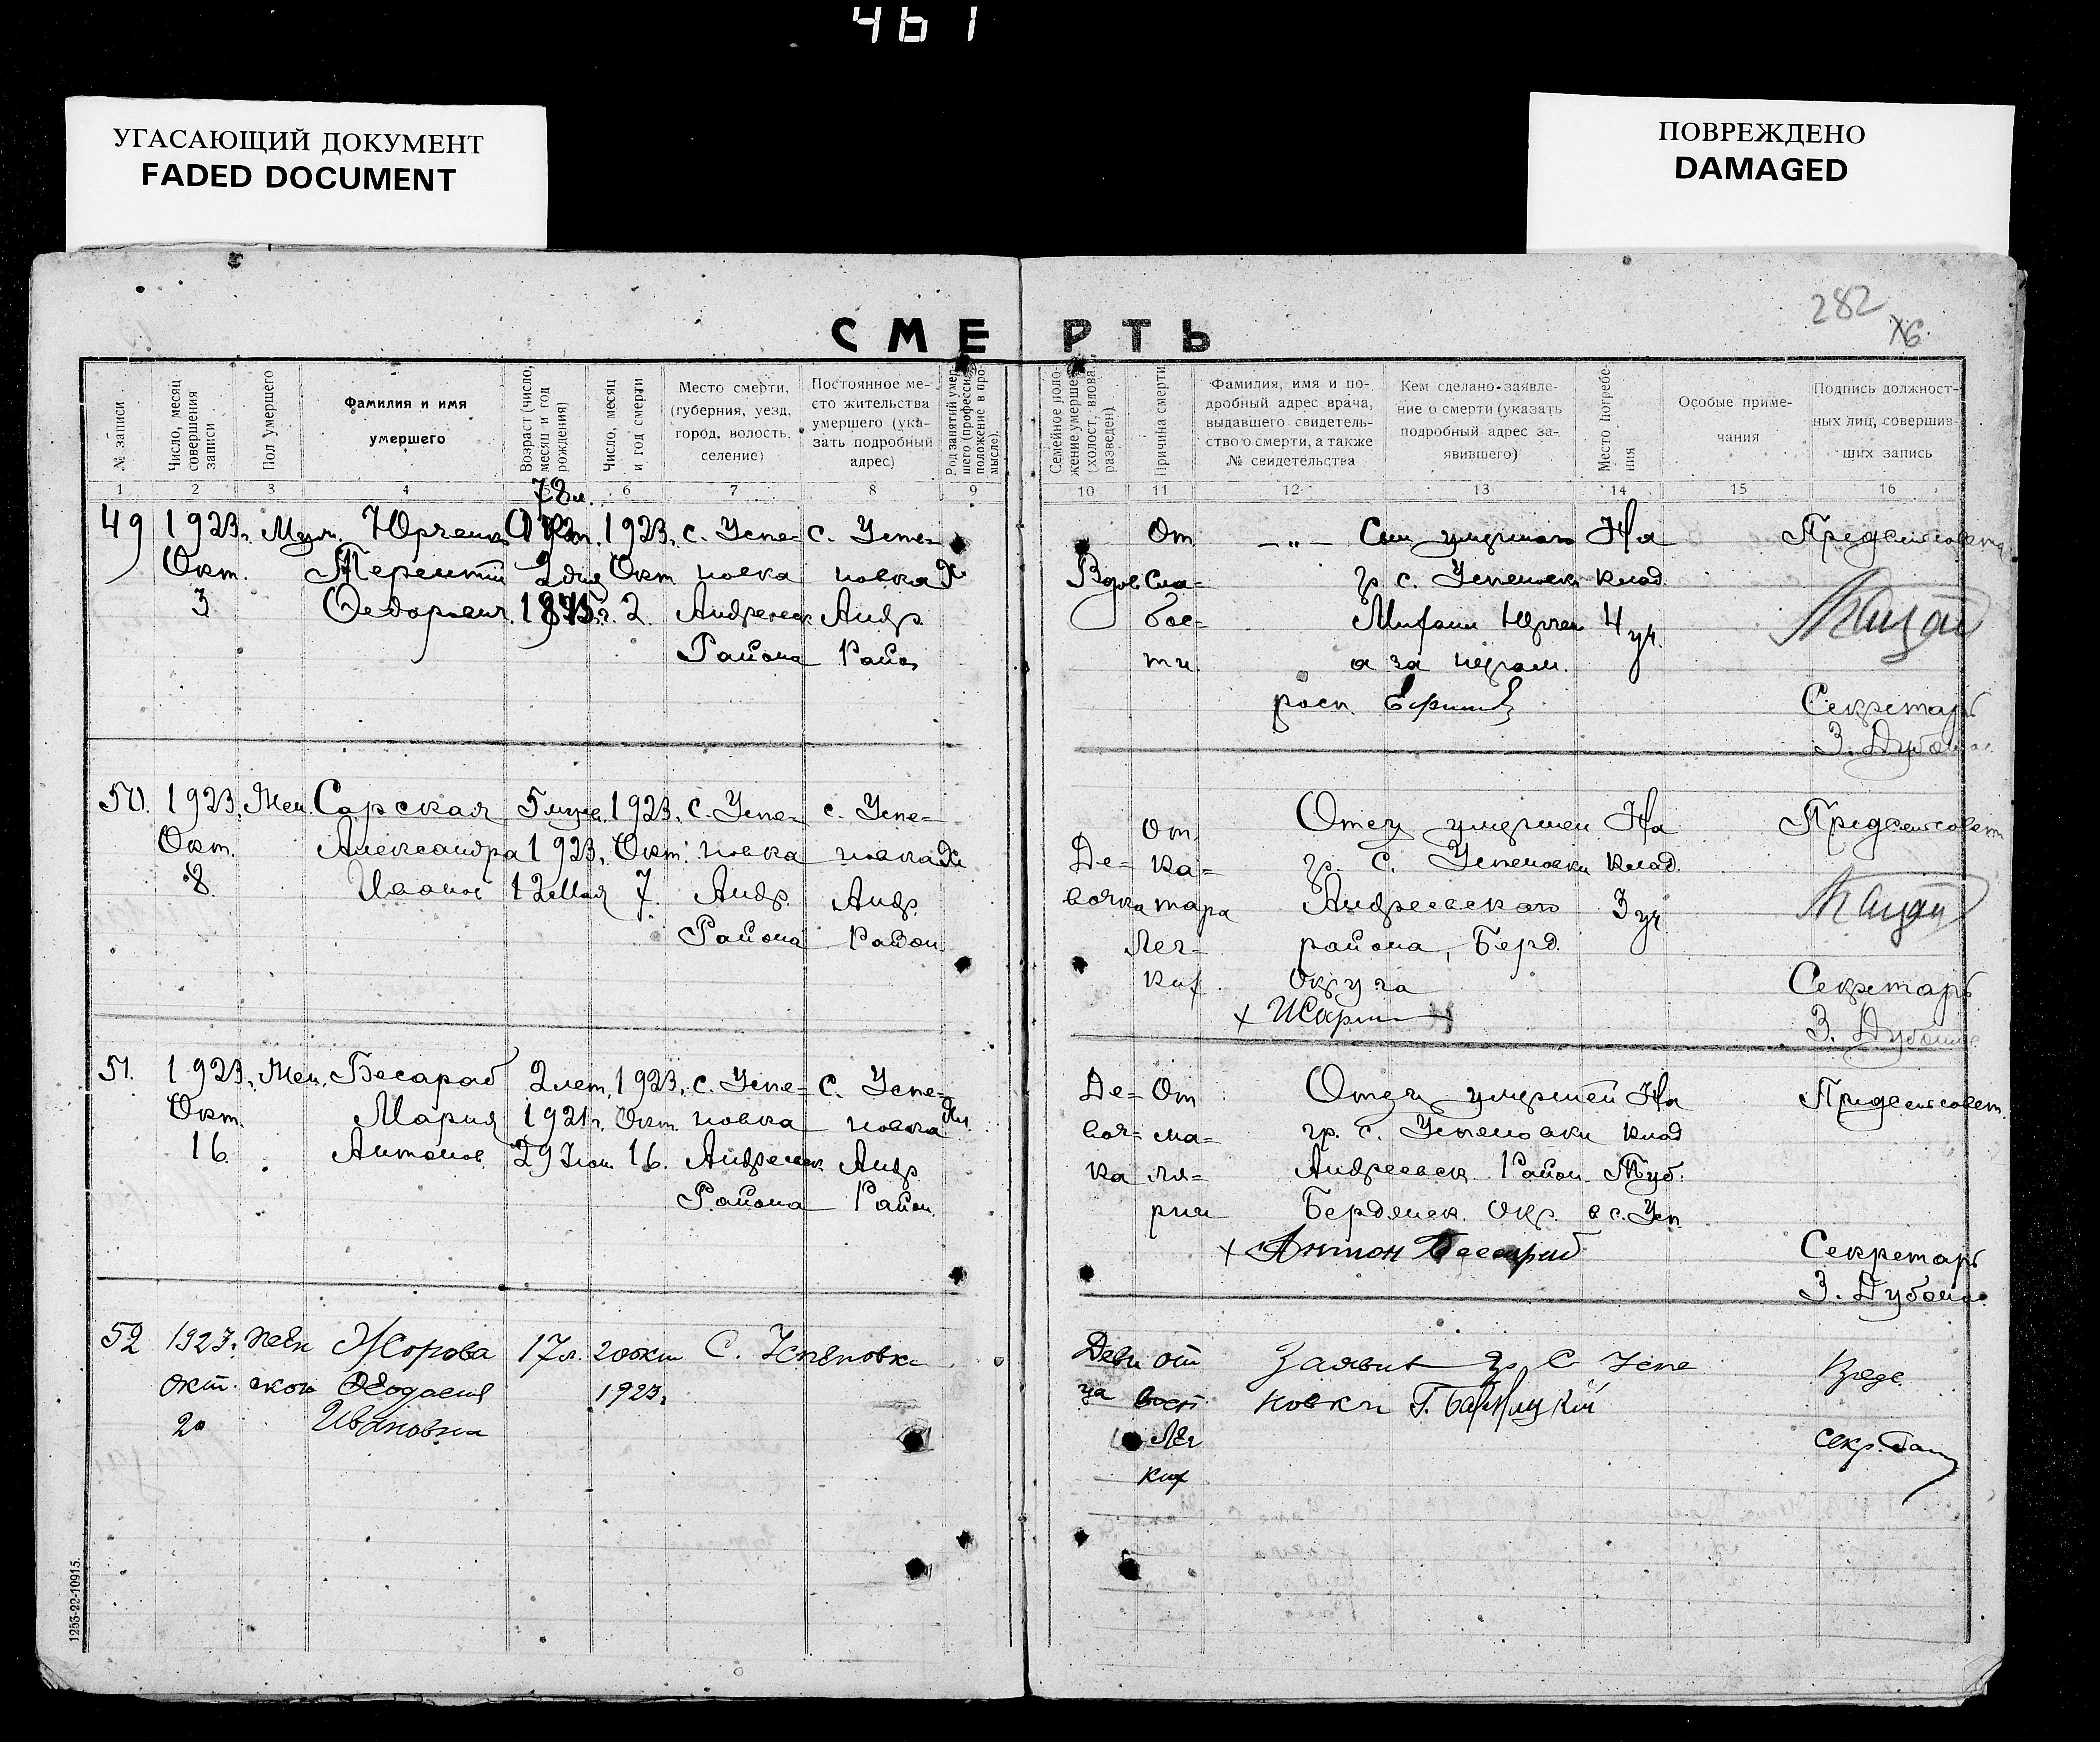 461
УГАСАЮЩИЙ ДОКУМЕНТ
FADED DOCUMENT
ПОВРЕЖДЕНО
DAMAGED
282
СМЕРТЬ
№ записи
Число, месяц совершения записи
Пол умершего
Фамилия и имя
умершего
Возраст (число, месяц и год рождения)
Число, месяц и год смерти
Место смерти,
(губерния, уезд,
город, волость,
селение)
Постоянное ме-
сто жительства
умершего (ука-
зать подробный
адрес)
Род занятий умер-
шего (профессия,
положение в про-
мысле).
Семейное поло-
жение умершего
(холост, вдова,
разведен)
Причина смерти
Фамилия, имя и по-
дробный адрес врача,
выдавшего свидетель-
ство о смерти, а также
№ свидетельства
Кем сделано заявле-
ние о смерти (указать
подробный адрес за-
явившего)
Место погребе-
ния
Особые приме-
чания
Подпись должност-
ных лиц, совершив-
ших запись
1 2 3 4 6 7 8 9 10 11 12 13 14 15 16
49
1923г.
Окт.
3
Муж.
Юрченко
Терентий
Федорович
78 л.
2 дня
1923г.
Окт
2.
с. Успе-
новка
Андреевск
Района
с. Успе-
новка
Андр.
Район
От
сла-
бос-
ти.
— " —
Сын умершаго
гр. с. Успеновки
а за неграм.
росп.
На
клад
4 уч.
Секретарь
З.
50.
1923г.
Окт.
8.
Жен.
Сарская
Александра
Иванов
5 месяц.
1923г.
12 Мая
1923г.
Окт.
7.
с. Успе-
новка
Андр.
Района
с. Успе-
новка
Андр.
Район.
Де-
вочка
От
ка-
тара
Лег-
ких
Отец умершей
гр. с. Успеновки
Андреевского
района, Берд.
Округа
На
клад.
3 уч.
Секретарь
З.
51.
1923г.
Окт.
16.
Жен.
Бесараб
Мария
Антонов.
2 лет.
1921г.
29 Июн
1923г.
Окт.
16.
с. Успе-
новка
Андреевск
Района
с. Успе-
новка
Андр
Район.
Де-
воч-
ка
От
ма-
ля-
рии
Отец умершей
гр. с. Успеновки
Андреевск. Район.
Бердянск. Окр.
+ Антон Бесараб
На
клад
в с. Усп.
Секретарь
З.
52
1923г.
окт.
20
Жен
ской
Жорова
Феодосия
Ивановна
17 л.
20 окт
1923г.
С. Успеновка
Деви
ца
от
восп
Лег
ких
Заявит гр. С Успе
новки Г.
Пред.
секр.
1253-22-10915.